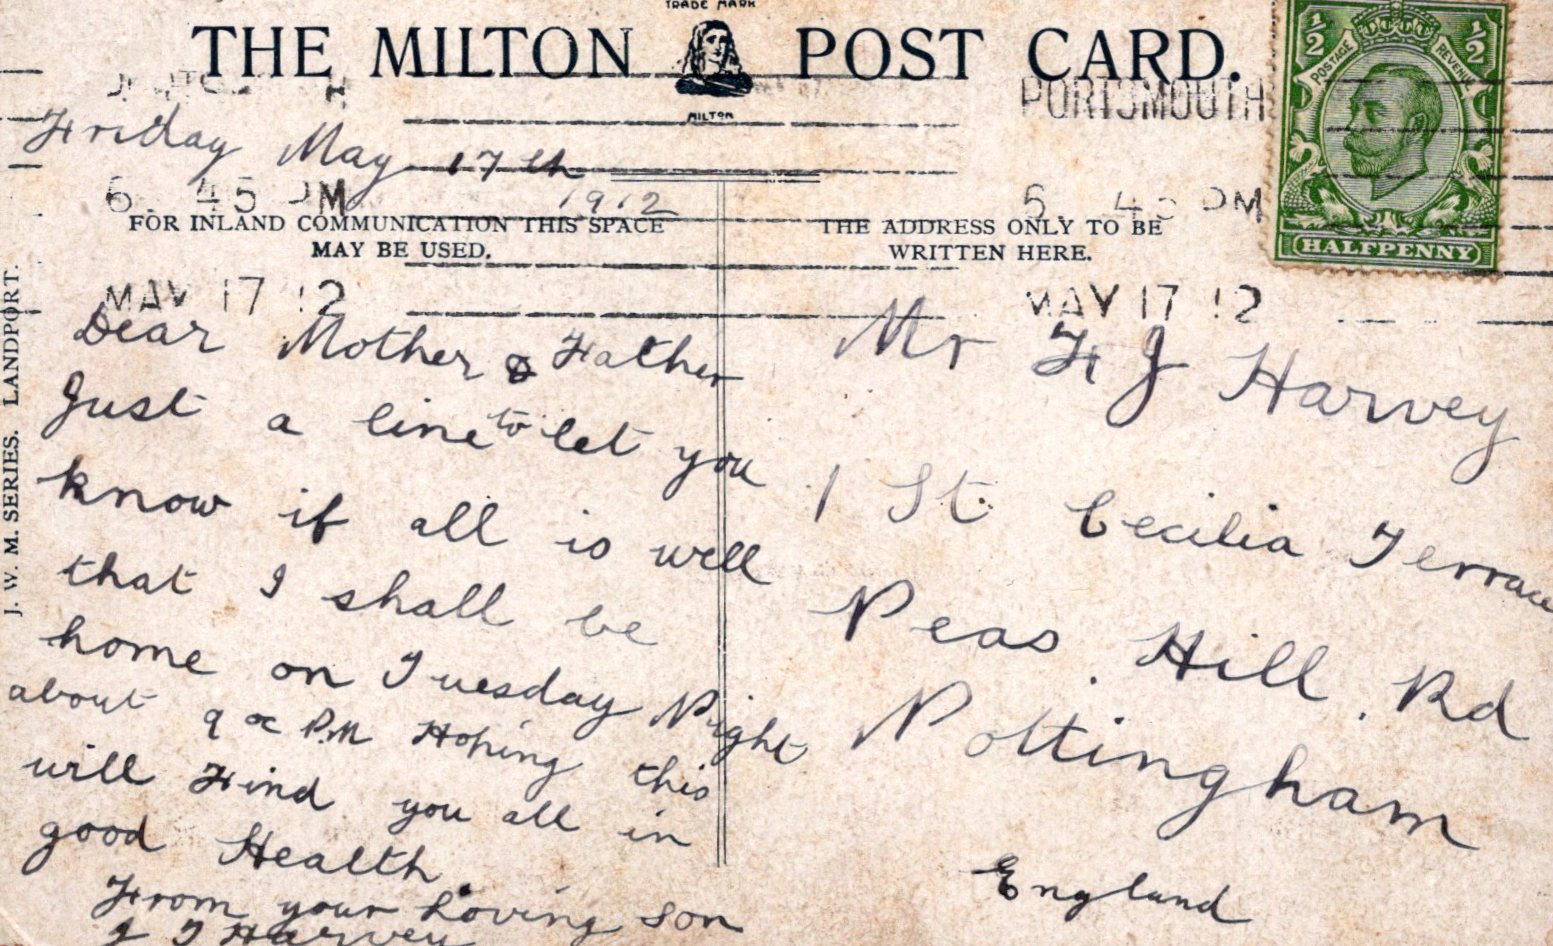 TRADE MARK
THE MILTON POST CARD.
MILTON
½ ½
POSTAGE REVENUE
HALFPENNY
PORTSMOUTH
6. 45 PM
MAY 17 12
5. 45 PM
MAY 17 12
Friday May 17th
1912
FOR INLAND COMMUNICATION THIS SPACE
MAY BE USED.
THE ADDRESS ONLY TO BE
WRITTEN HERE.
J. W. M. SERIES. LANDPORT.
Dear Mother & Father
Just a line to let you
know if all is well
that I shall be
home on Tuesday Night
about 9 oc P.M Hoping this
will Find you all in
good Health.
From your Loving son
J T Harvey
Mr F J Harvey
1 St. Cecilia Terrace
Peas. Hill. Rd
Nottingham
England